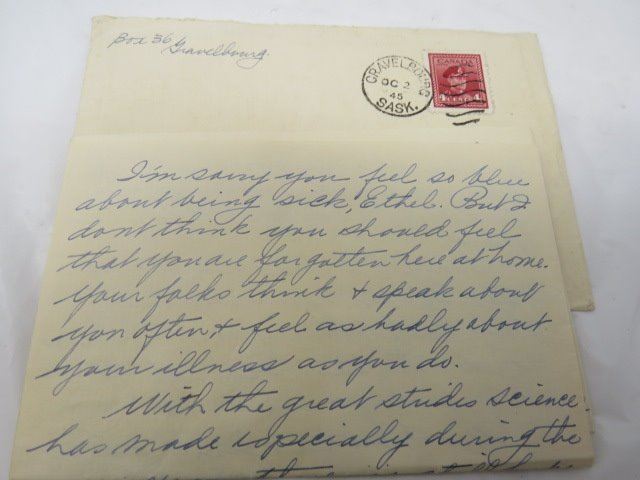 Box 36
Gravelbourg
GRAVELBOURG
OC 2
45
SASK.
CANADA
4 4
I'm sorry you feel so blue
about being sick, Ethel. But I
dont think you should feel
that you are forgotten here at home.
Your folks think + speak about
you often + feel as badly about
your illness as you do.
With the great strides science
has made especially during the